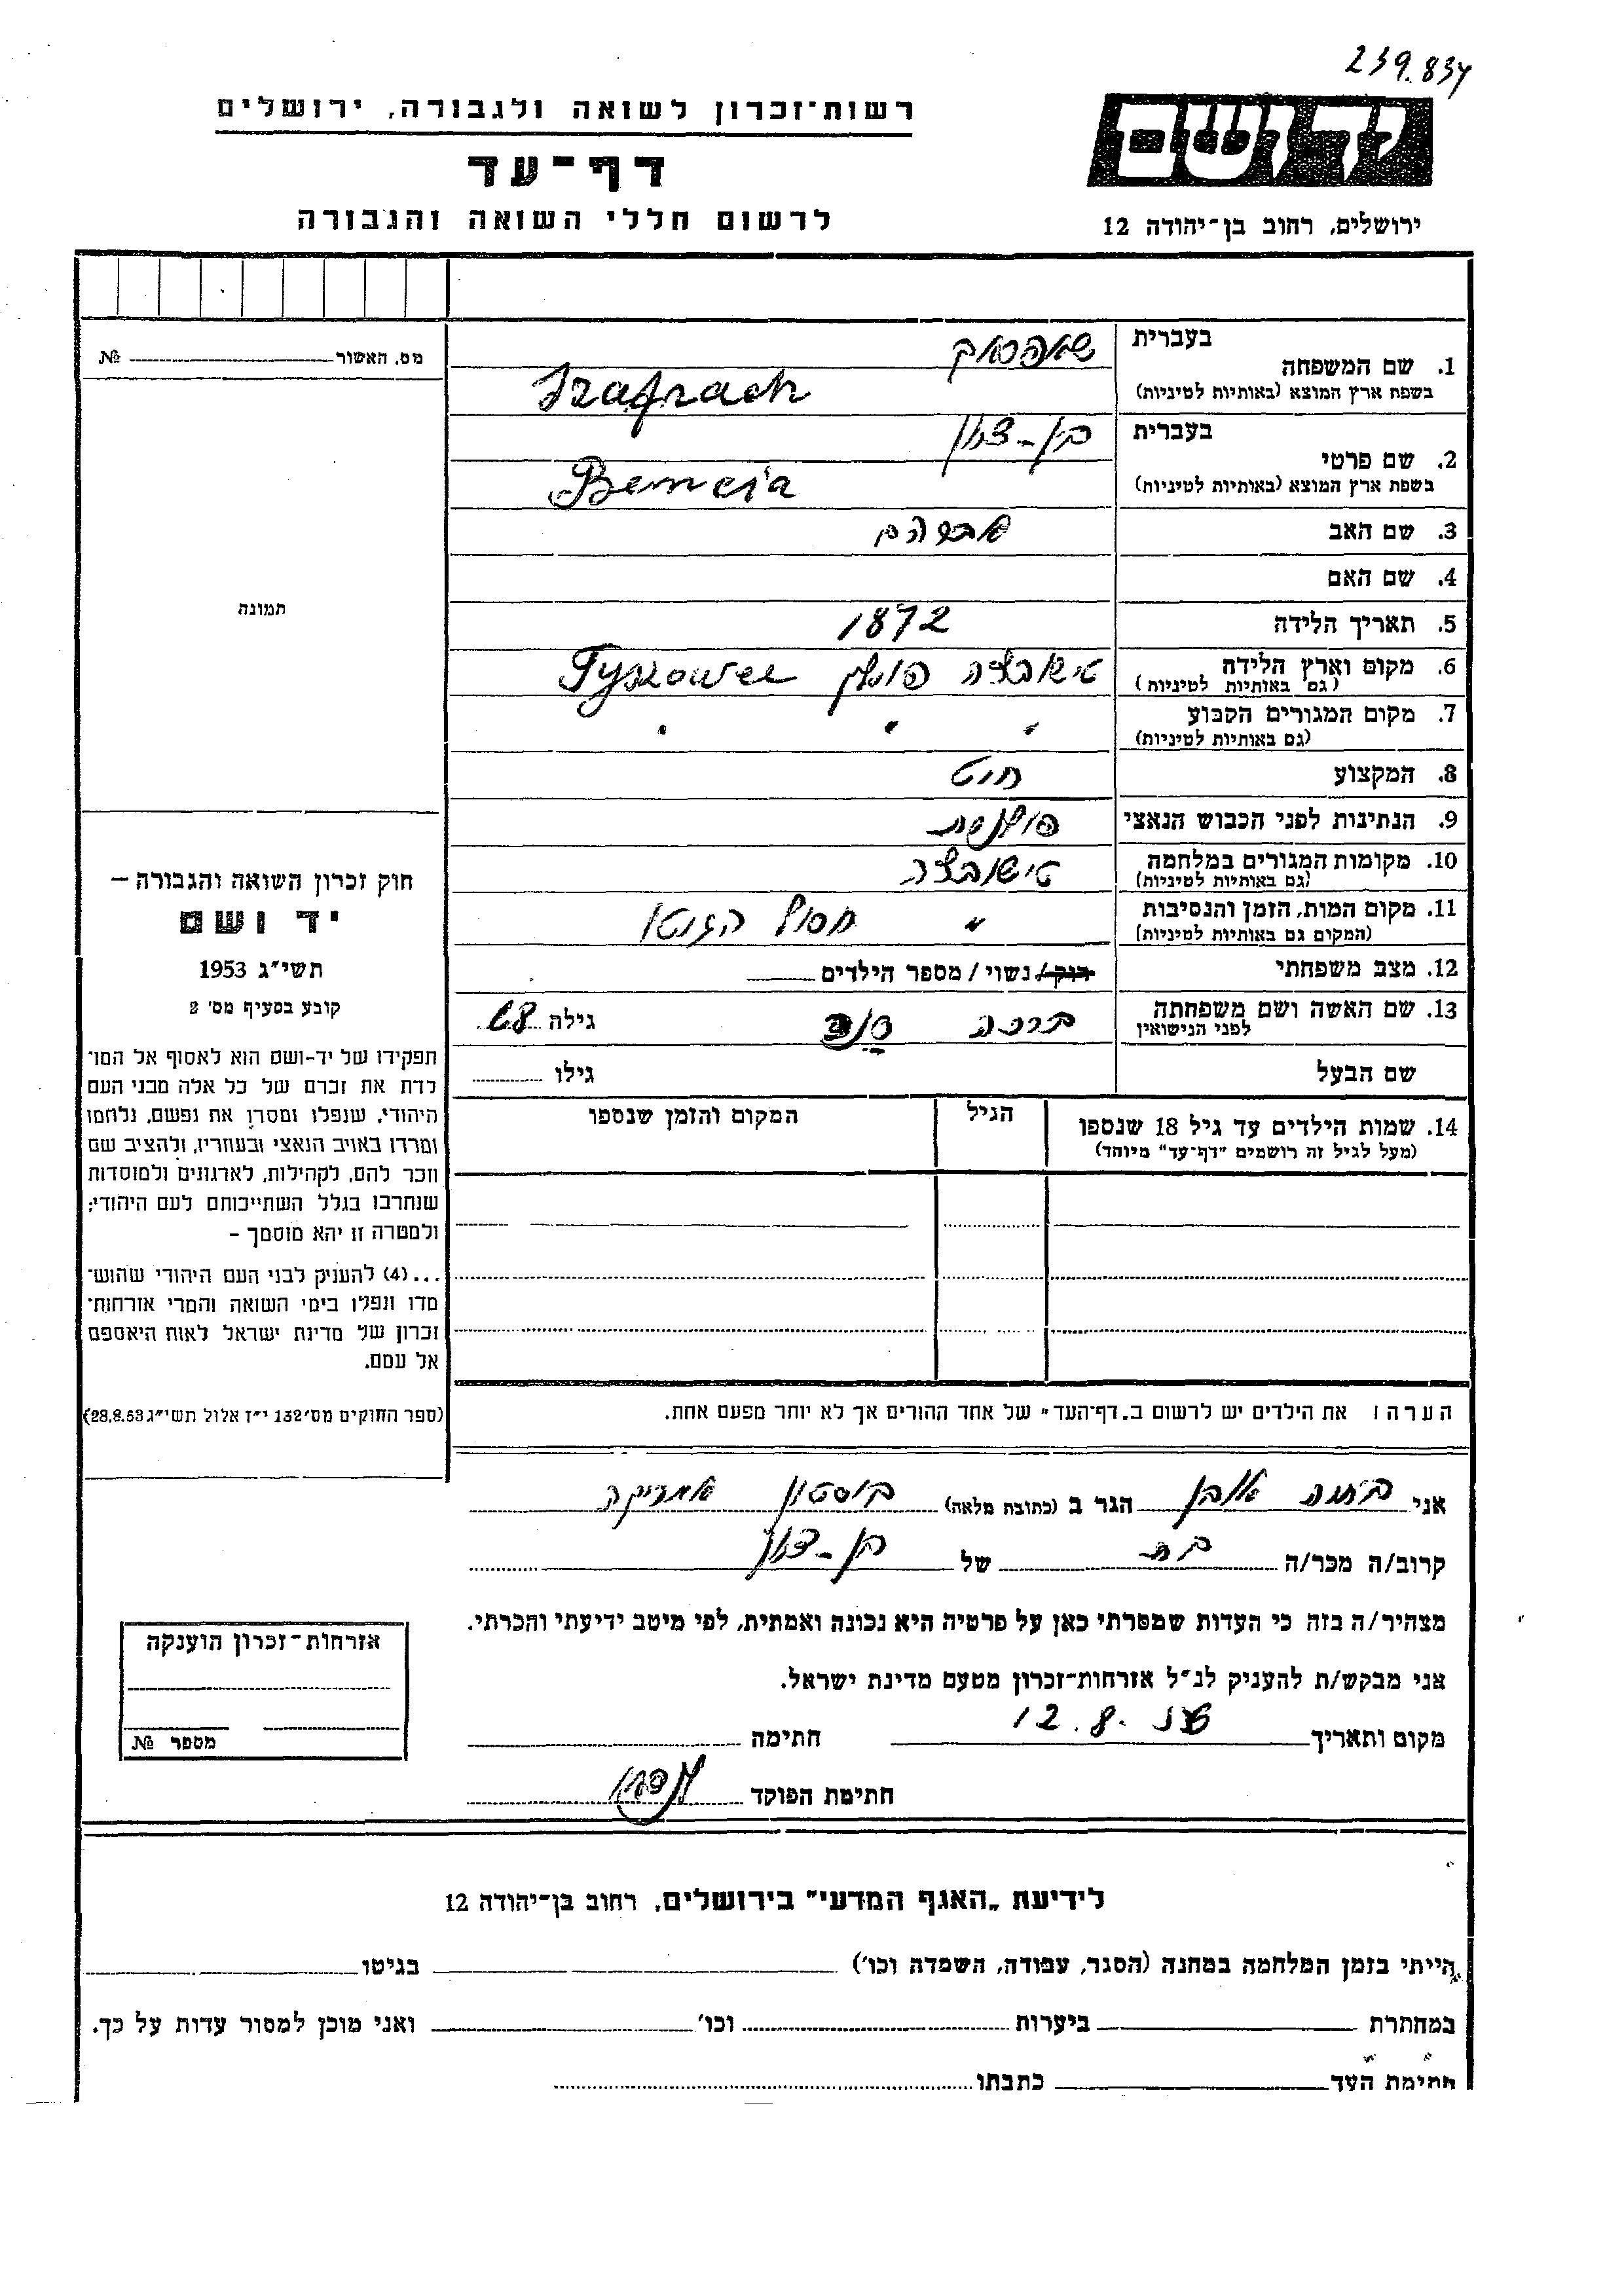 239.834
רשות־זכרון לשואה ולגבורה, ירושלים
דף־עד
לרשום חללי השואה והגבורה
יד ושם
ירושלים, רחוב בן־יהודה 12
מס. האשור №
תמונה
בעברית
1. שם המשפחה
בשפת ארץ המוצא (באותיות לטיניות)
Szafrach
בעברית בן-ציון
2. שם פרטי
בשפת ארץ המוצא (באותיות לטיניות)
3. שם האב אברהם
4. שם האם
5. תאריך הלידה 1872
6. מקום וארץ הלידה פולין Tyszowce
(גם באותיות לטיניות)
7. מקום המגורים הקבוע " " "
(גם באותיות לטיניות)
8. המקצוע חיט
9. הנתינות לפני הכבוש הנאצי פולנית
10. מקומות המגורים במלחמה טישובצה
(גם באותיות לטיניות)
11. מקום המות, הזמן והנסיבות "
(המקום גם באותיות לטיניות)
12. מצב משפחתי רווק/ נשוי / מספר הילדים
13. שם האשה ושם משפחתה
לפני הנישואין
ברכה גילה 68
שם הבעל גילו
14. שמות הילדים עד גיל 18 שנספו הגיל המקום והזמן שנספו
(מעל לגיל זה רושמים "דף־עד" מיוחד)
הערה: את הילדים יש לרשום ב„דף־העד" של אחד ההורים אך לא יותר מפעם אחת.
חוק זכרון השואה והגבורה —
יד ושם
תשי"ג 1953
קובע בסעיף מס' 2
תפקידו של יד-ושם הוא לאסוף אל המו־
לדת את זכרם של כל אלה מבני העם
היהודי, שנפלו ומסרו את נפשם, נלחמו
ומרדו באויב הנאצי ובעוזריו, ולהציב שם
וזכר להם, לקהילות, לארגונים ולמוסדות
שנחרבו בגלל השתייכותם לעם היהודי;
ולמטרה זו יהא מוסמך –
...(4) להעניק לבני העם היהודי שהוש־
מדו ונפלו בימי השואה והמרי אזרחות־
זכרון של מדינת ישראל לאות היאספם
אל עמם.
(ספר החוקים מס' 132 י"ז אלול תשי"ג 28.8.53)
אני הגר ב (כתובת מלאה) בוסטון אמריקה
קרוב/ה מכר/ה בת של בן-ציון
מצהיר/ה בזה כי העדות שמסרתי כאן על פרטיה היא נכונה ואמתית, לפי מיטב ידיעתי והכרתי.
אני מבקש/ת להעניק לנ"ל אזרחות־זכרון מטעם מדינת ישראל.
מקום ותאריך 12.8. חתימה
חתימת הפוקד
אזרחות־זכרון הוענקה
מספר №
לידיעת „האגף המדעי" בירושלים, רחוב בן־יהודה 12
הייתי בזמן המלחמה במחנה (הסגר, עבודה, השמדה וכו') בגיטו
במחתרת ביערות וכו' ואני מוכן למסור עדות על כך.
חתימת העד כתבתו